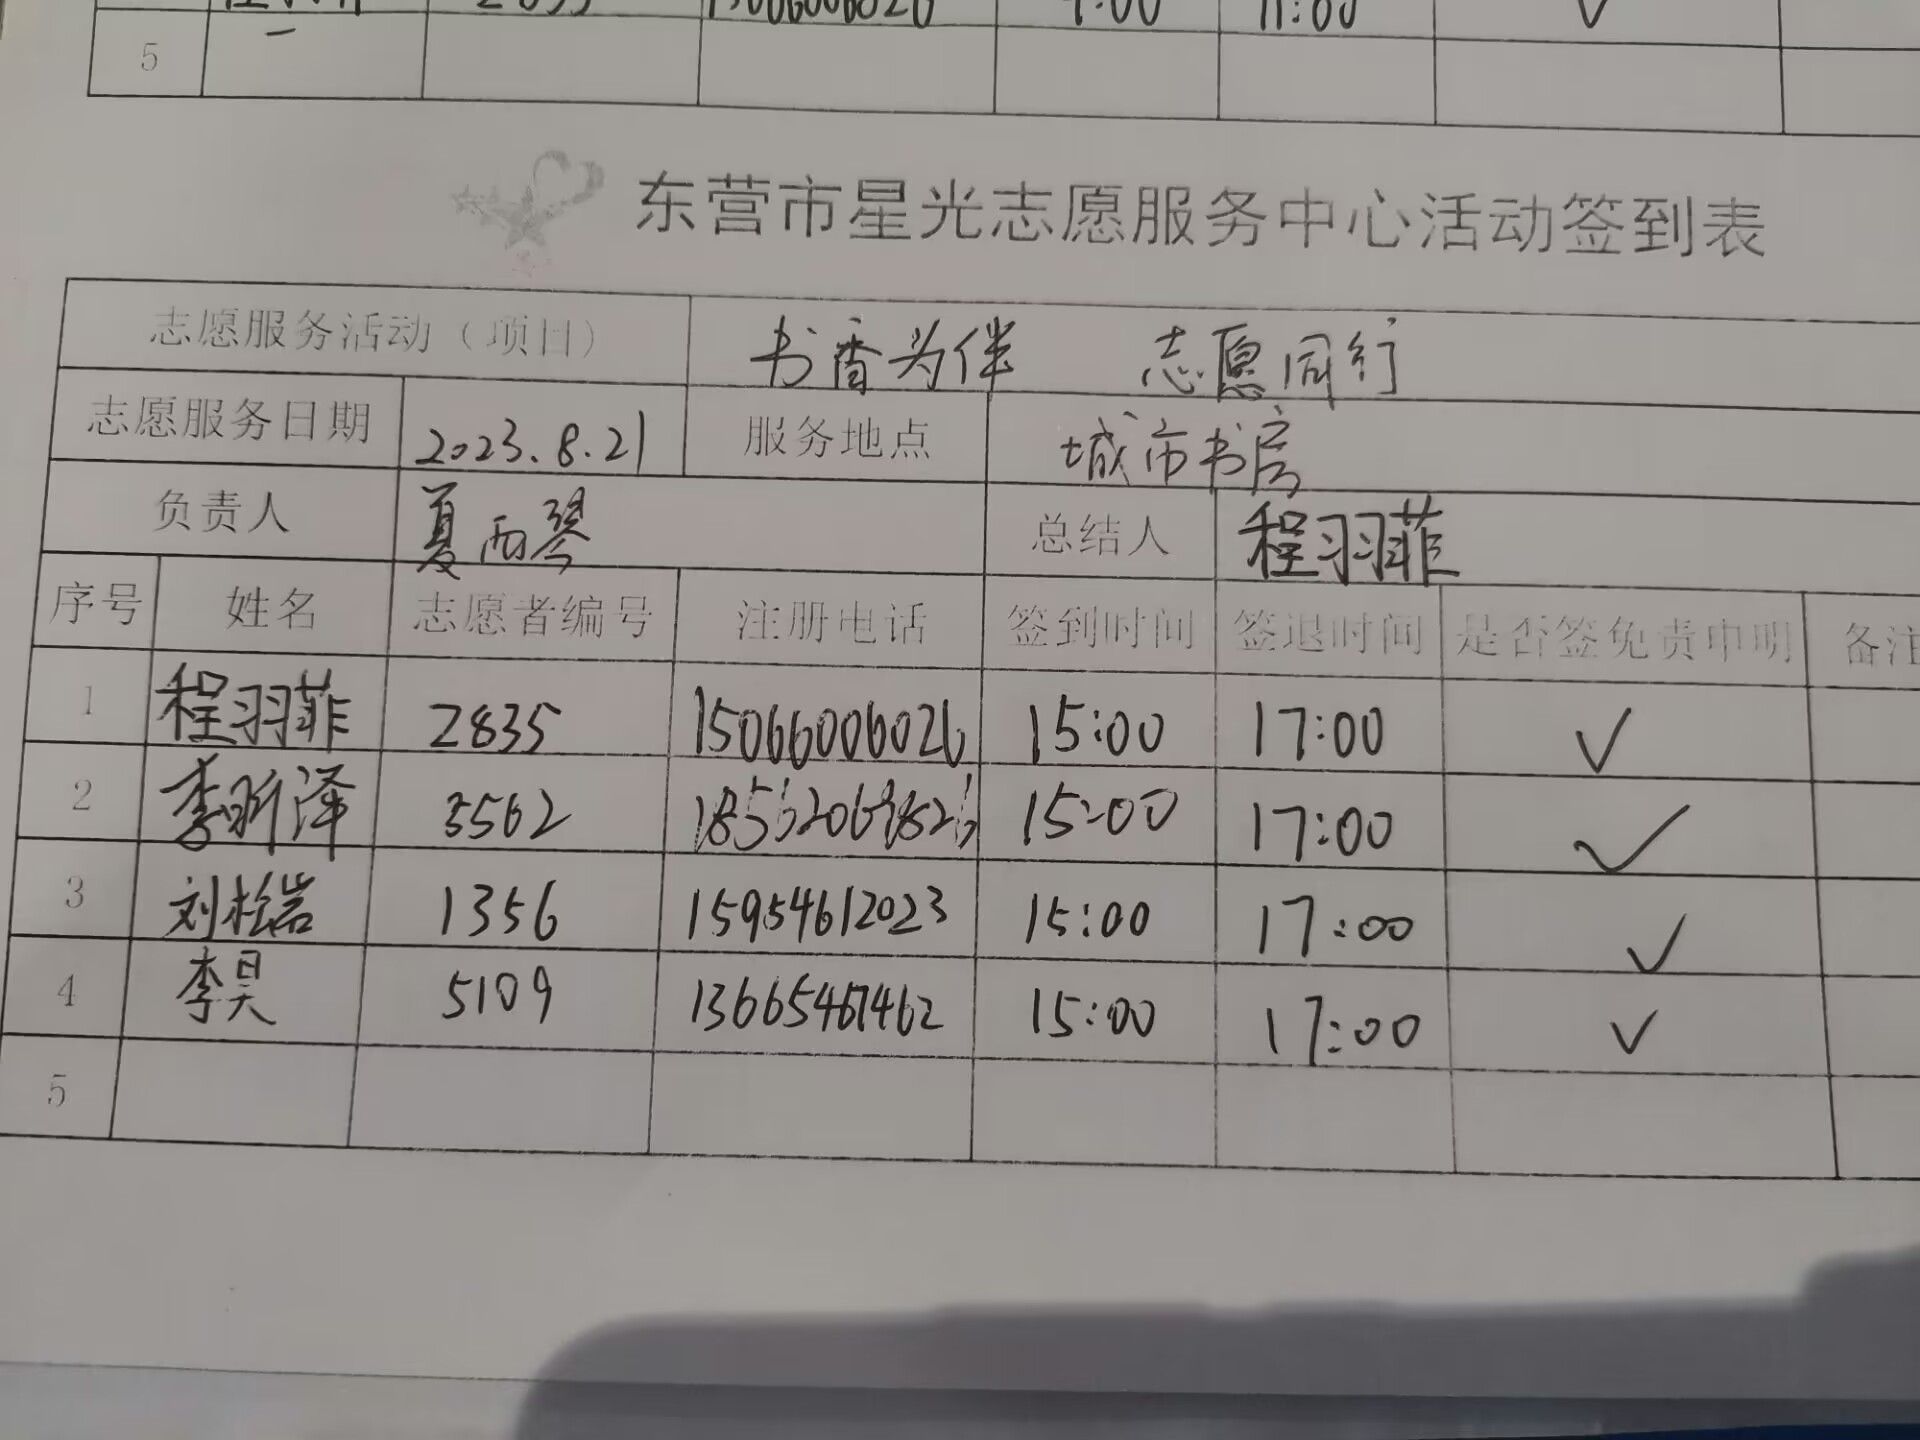 5
东营市星光志愿服务中心活动签到表
志愿服务活动（项目） 书香为伴 志愿同行
志愿服务日期 2023.8.21 服务地点 城市书房
负责人 夏雨琴 总结人 程羽菲
序号 姓名 志愿者编号 注册电话 签到时间 签退时间 是否签免责申明 备注
1 程羽菲 2835 15066006026 15:00 17:00 √
2 李昕泽 3562 15:00 17:00 √
3 刘松岩 1356 15954612023 15:00 17:00 √
4 李昊 5109 13665467462 15:00 17:00 √
5